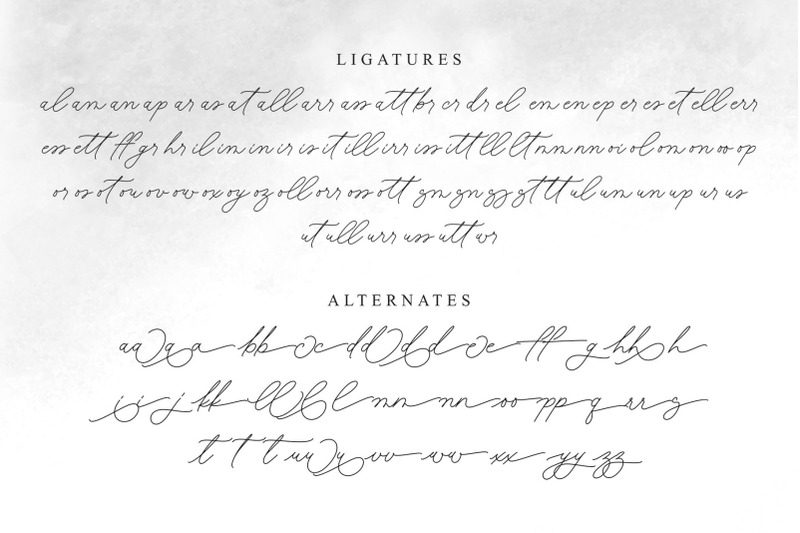 LIGATURES
al am an ap ar as at all arr ass att br cr dr el em en ep er es et ell err
ess ett ff gr hr il im in ir is it ill irr iss itt ll lt mm nn oi ol om on oo op
or os ot ou ov ow ox oy oz oll orr oss ott sm sn ss st tt ul um un up ur us
ut ull urr uss utt wr
ALTERNATES
a a a a b b c c d d d d e e f f g h h h
i i j k k l l l l m m n n o o p p q r r s
t t t u u u v v w w x x y y z z